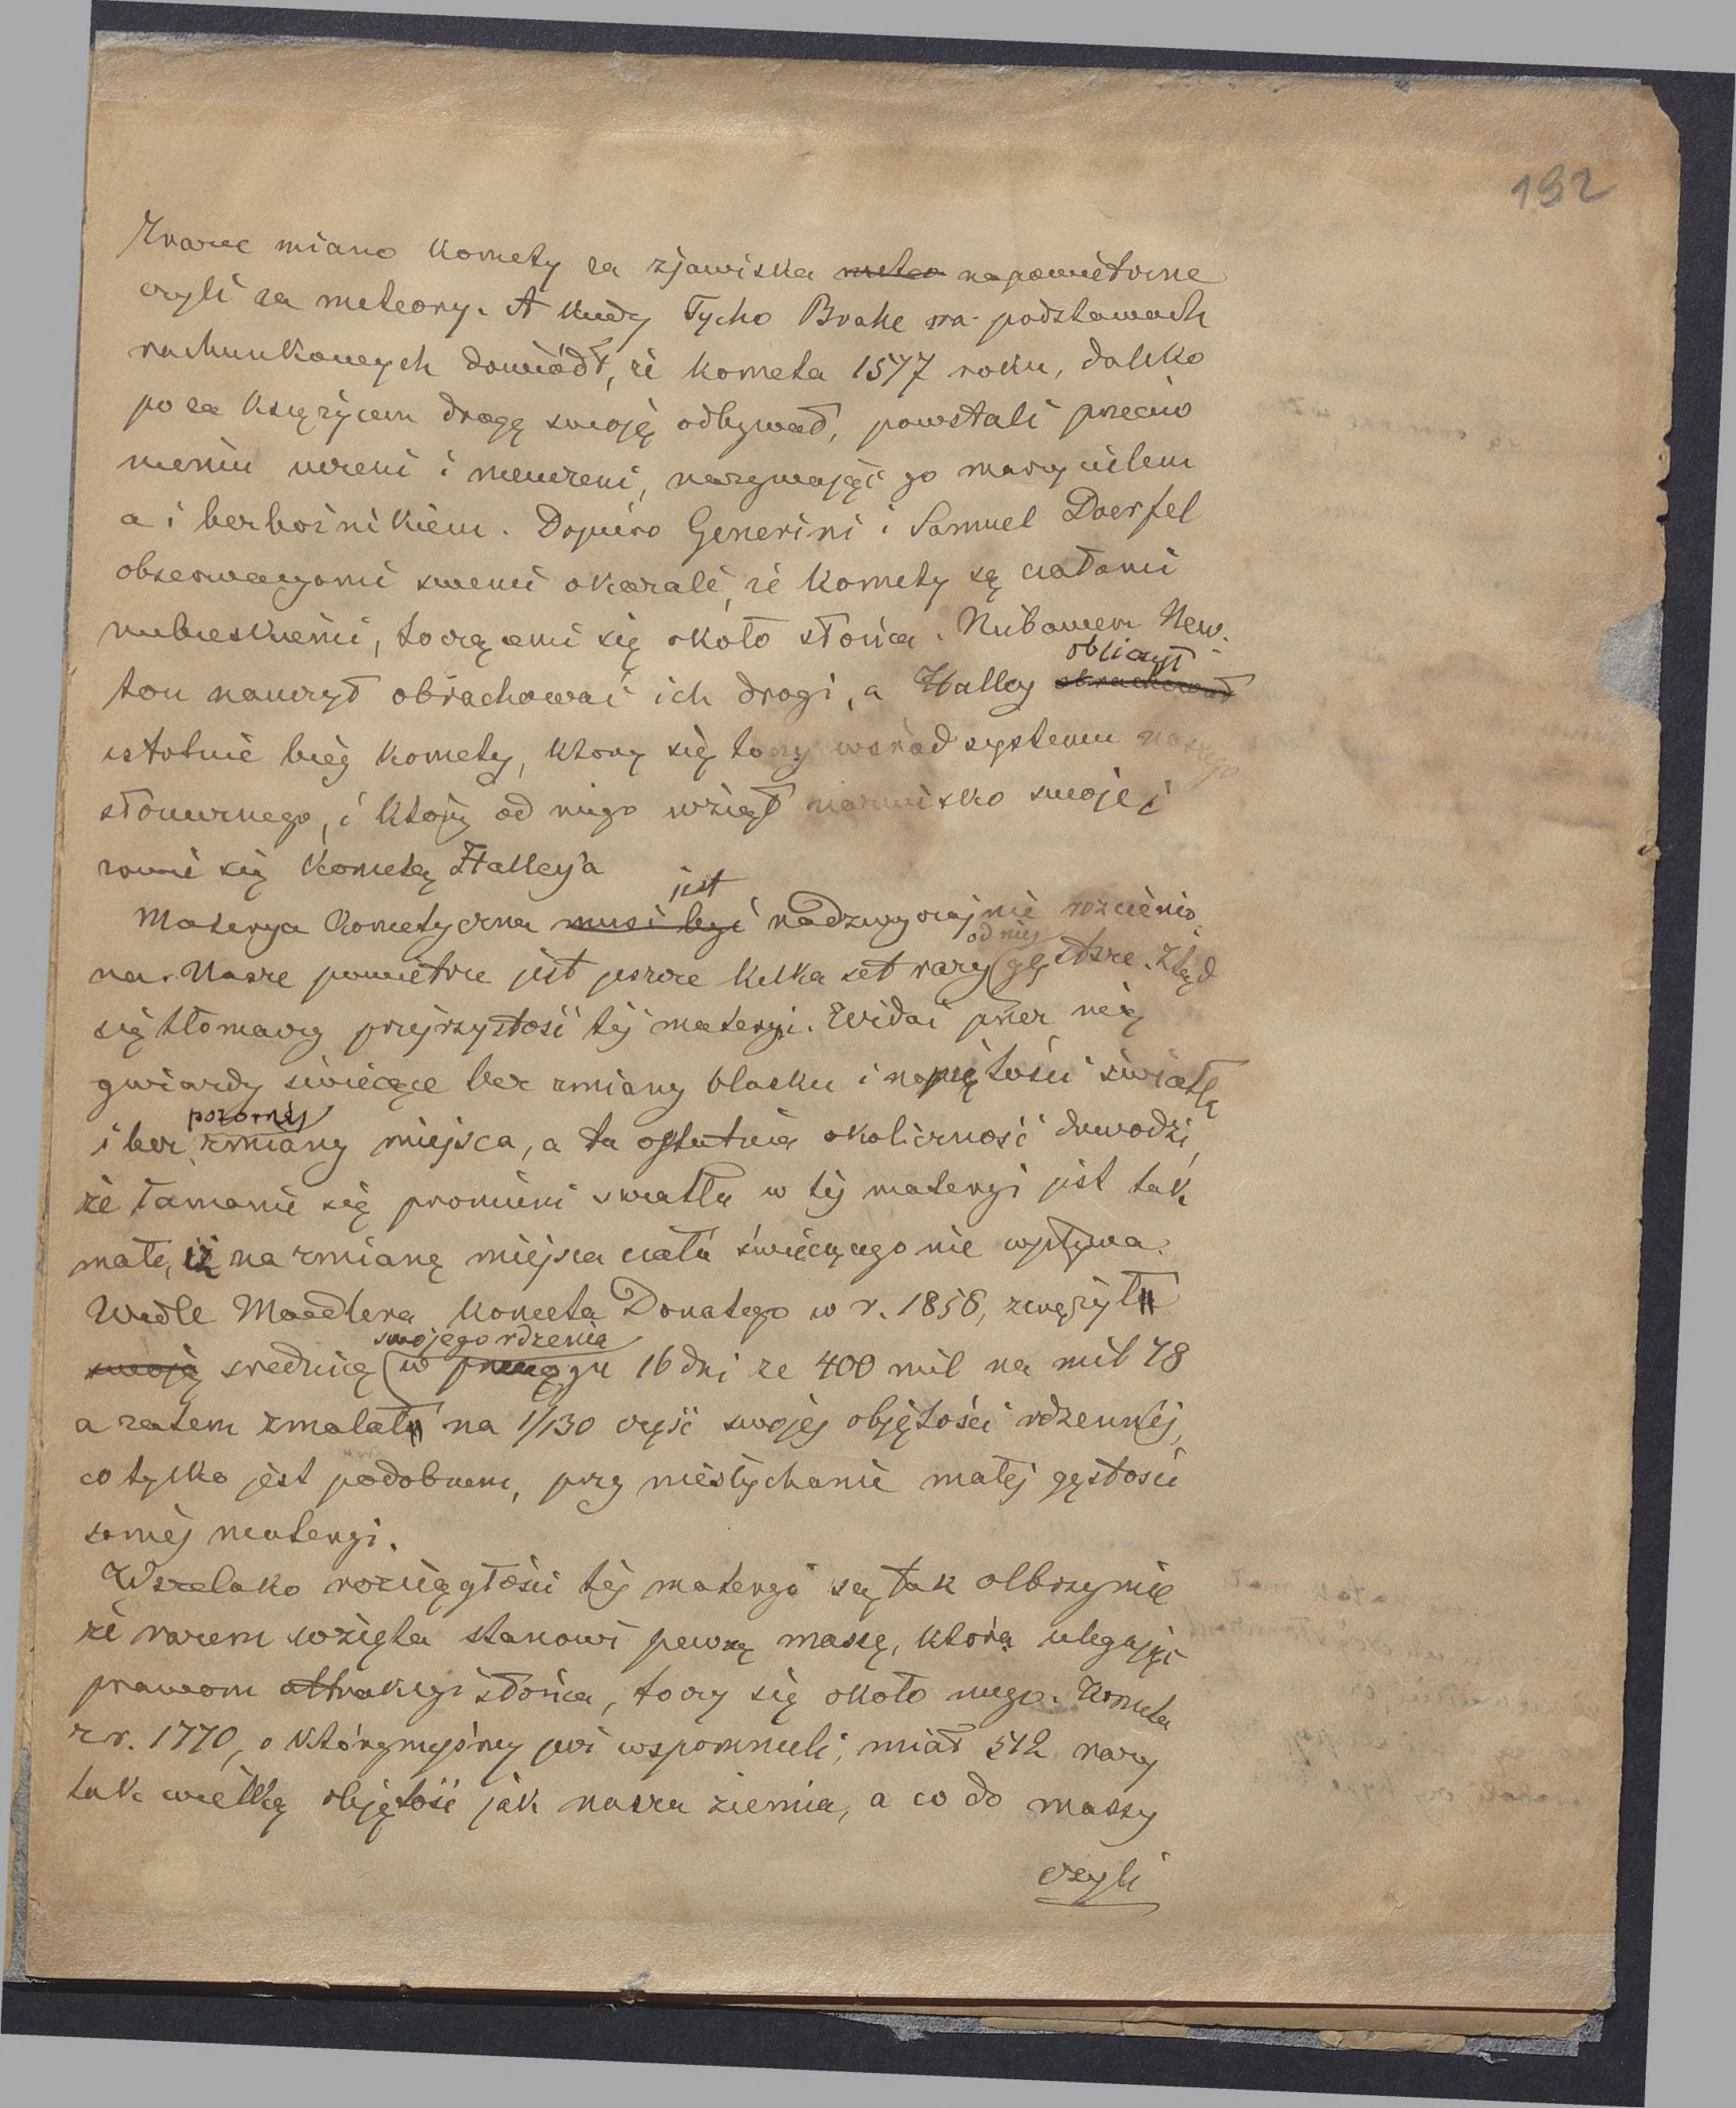 192
miano komety za zjawiska meteo napowietrzne
czyli za meteory. A kiedy Tycho Brahe na podstawach
rachunkowych dowiódł, że kometa 1577 roku, daleko
poza księżycem drogę swoję odbywał, powstali przeciw
niemu uczeni i nieuczeni, nazywając go marzycielem
a i bezbożnikiem. Dopiero Generini i Samuel Doerfel
obserwacyami swemi okazali, że komety są ciałami
niebieskiemi, toczącemi się około słońca. Niebawem New-
ton nauczył obrachować ich drogi, a Halley obrachował obliczył
istotnie bieg komety, który się toczy wśród systemu naszego
słonecznego, i który od niego wziął nazwisko swoje i
zowie się kometą Halleya
Materya kometyczna musi być jest nadzwyczajnie rozcieńczo
na. Nasze powietrze jest jeszcze kilka set razy od niej gęstsze. Ztąd
się tłomaczy przejrzystość tej materyi. Widać przez nią
gwiazdy świecące bez zmiany blasku i napiętości światła
i bez pozornej zmiany miejsca, a ta ostatnia okoliczność dowodzi,
że łamanie się promieni światła w tej materyi jest tak
małe, iż na zmianę miejsca ciała świecącego nie wpływa.
Wedle Maedlera kometa Donatego w r. 1858, zwęził
swoją średnicę swojego rdzenia w przeciągu 16 dni ze 400 mil na mil 78
a zatem zmalał na 1/130 część swojej objętości rdzennej,
co tylko jest podobnem, przy niesłychanie małej gęstości
samej materyi.
Wszelako rozciągłości tej materyi są tak olbrzymie
że razem wzięta stanowi pewną massę, która ulegając
prawom attrakcyi słońca, toczy się około niego. Kometa
z r. 1770, o którymeśmy już wspomnieli, miał 512 razy
tak wielką objętość jak nasza ziemia, a co do massy
czyli